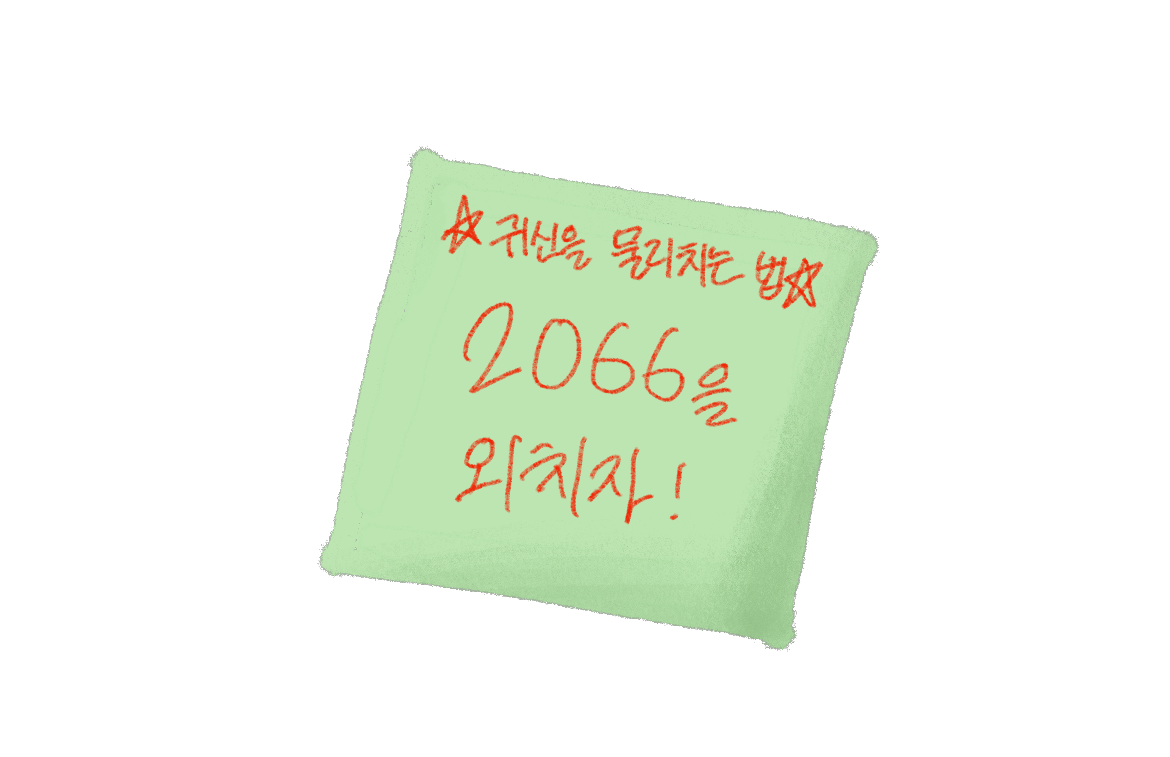 ☆귀신을 물리치는 법☆
2066을
외치자!